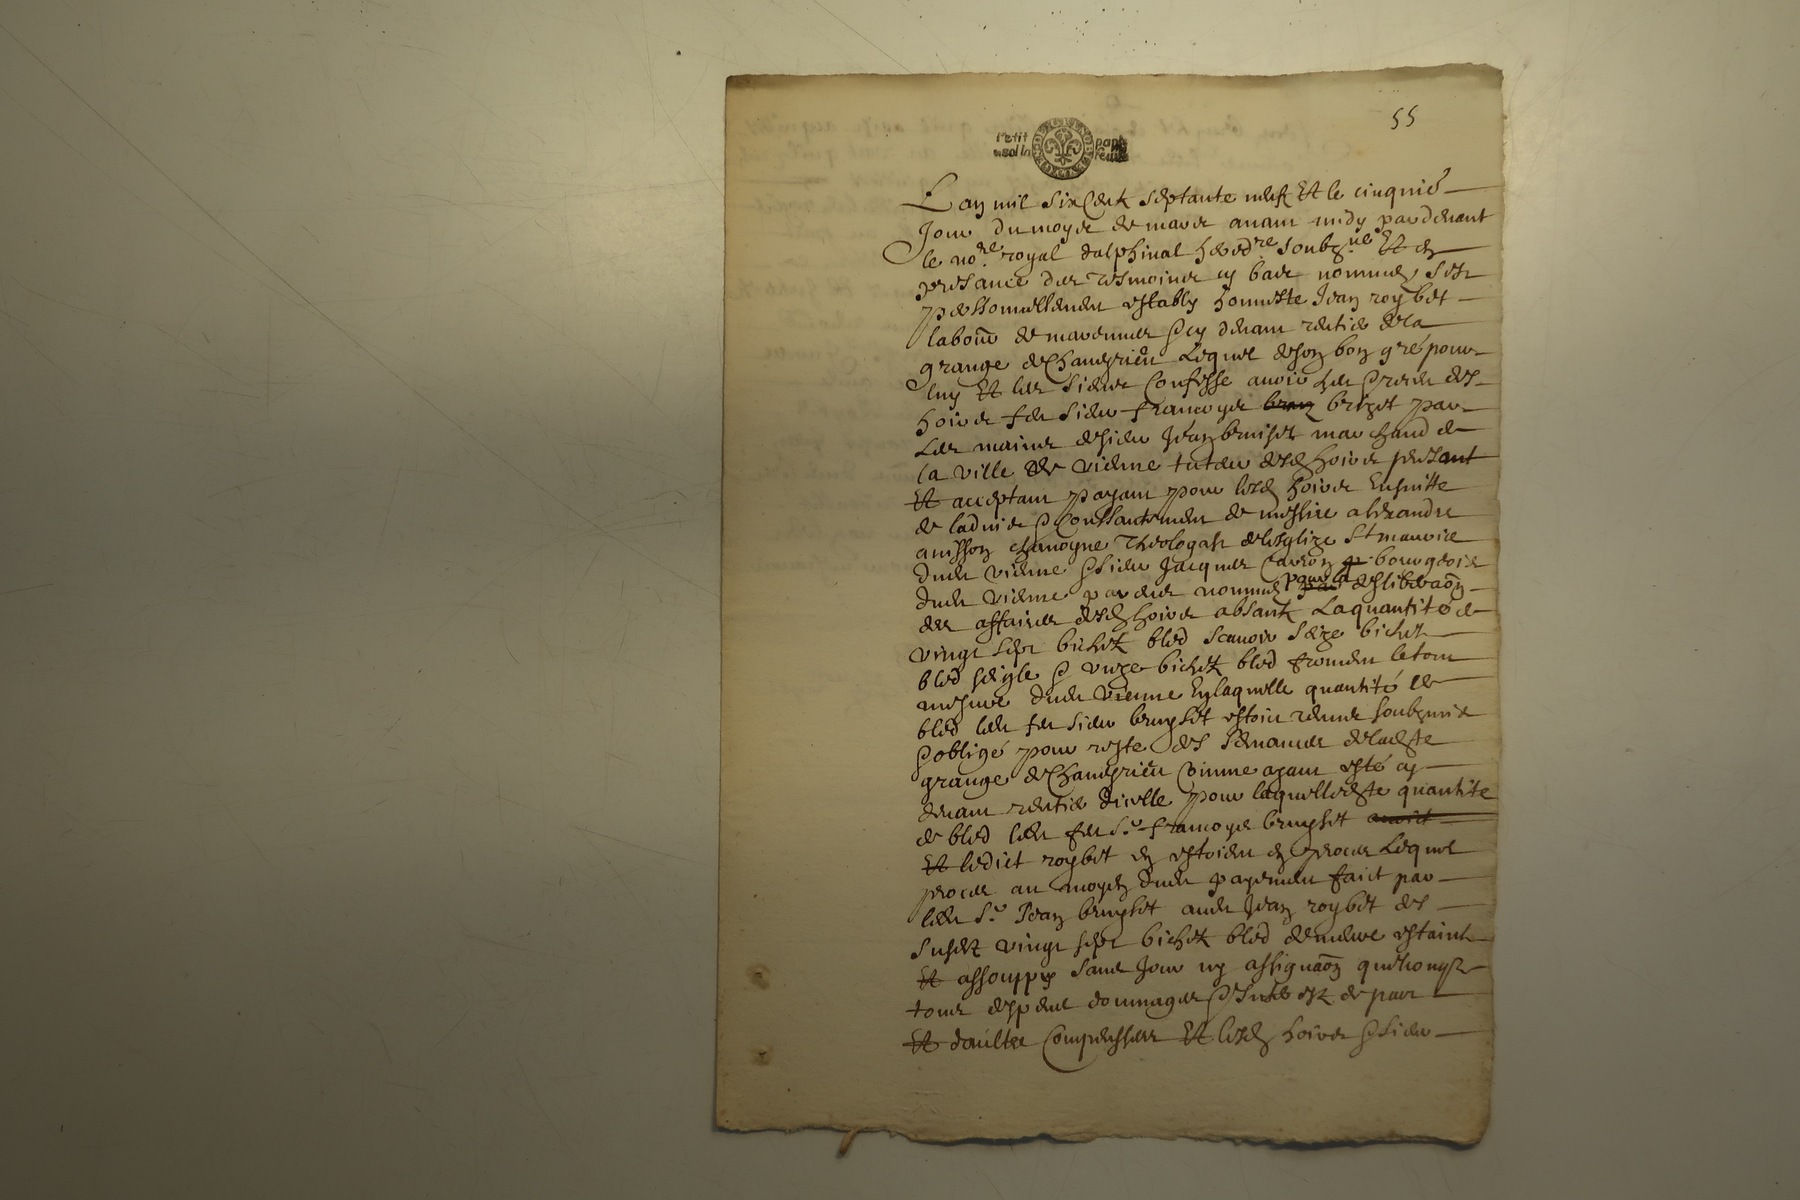 55
Petit papi
sol la feuille
Lan mil six Centz septante neufz Et le cinquie
Jour du moys de mars avant midy pardevant
le no.re royal dalphinal hered.re soubz.né Et en
presance des tesmoings cy bas nommes sest
personnellement estably honneste Jean roybet
labour de marennes cy devant rentier de la
grange de Chandyrieu Lequel de son bon gré pour
luy Et les siens Confesse avoir heu & receu des
hoirs feu sieur francoys brizet par
Les mains de sieur Jean bruiset marchand de
la ville de vienne tuteur desd hoirs presant
Et acceptant payant pour lesd hoirs Ensuitte
de ladvis & Consantement de messire alexandre
anisson chanoyne Theologal de lesglize St maurice
dudt vienne & sieur Jacques Carron bourgeois
dudt vienne parens nommes pour la deliberaon
des affaires desd hoirs absantz La quantité de
vingt sept bichetz bled scavoir seize bichetz
bled seigle & unze bichetz bled froment le tout
mesure dudt vienne En laquelle quantité de
bled ledt feu sieur bruyset estoit tenu soubzmis
& obligé pour reste des semances de ladte
grange de Chandyrieu Comme ayant esté cy
devant rentier dicelle pour laquelle dte quantite
de bled ledt feu Sr francoys bruyset
Et ledict roybet en estoient en proces Lequel
proces au moyen dudt payement faict par
ledt Sr Jean bruyset audt Jean roybet des
susdtz vingt sept bichetz bled demeure estaint
Et assouppy sans Jour ny assignaon
tous despens dommages & Interestz de part
Et daultre Compensses Et lesd hoirs & sieur